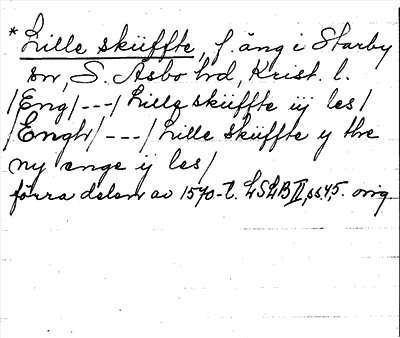 * Lille sküffte, f. äng i Starby
sn, S. Åsbo hd, Krist. l.
/Eng/---/ Lille sküffte iij les/
/Engh/---/ Lille sküffte y the
ny enge ij les/
förra delen av 1570-t. LSLB II, ss. 4, 5. orig